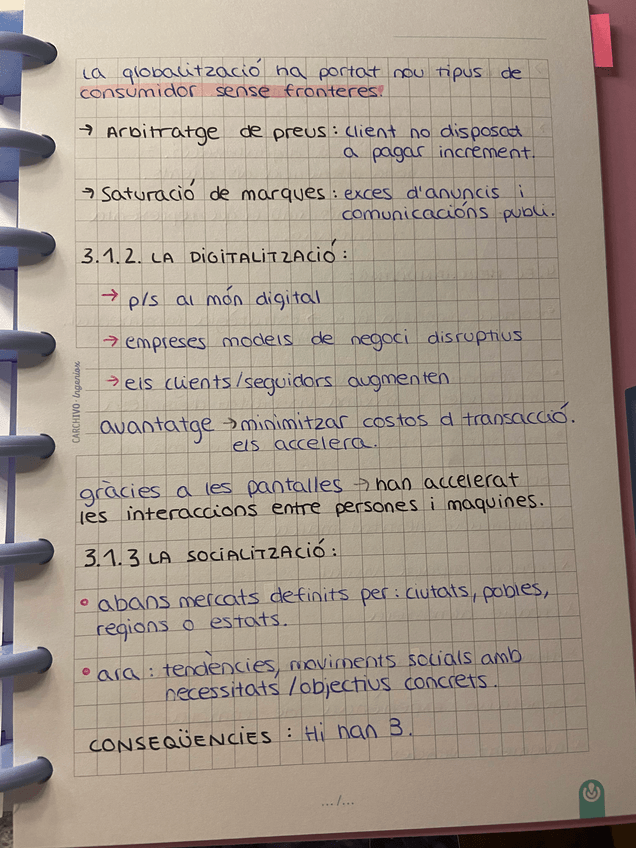 La globalització ha portat nou tipus de
consumidor sense fronteres.
→ Arbitratge de preus: client no disposat
a pagar increment.
→ Saturació de marques: exces d'anuncis i
comunicacións publi.
3.1.2. LA DIGITALITZACIÓ:
→ p/s al món digital
→ empreses models de negoci disruptius
→ els clients/seguidors augmenten
avantatge → minimitzar costos d transacció.
els accelera.
gràcies a les pantalles → han accelerat
les interaccions entre persones i maquines.
3.1.3 LA SOCIALITZACIÓ:
• abans mercats definits per: ciutats, pobles,
regions o estats.
• ara: tendències, moviments socials amb
necessitats/objectius concrets.
CONSEQÜENCIES: Hi han 3.
.../...
CARCHIVO Ingeniox